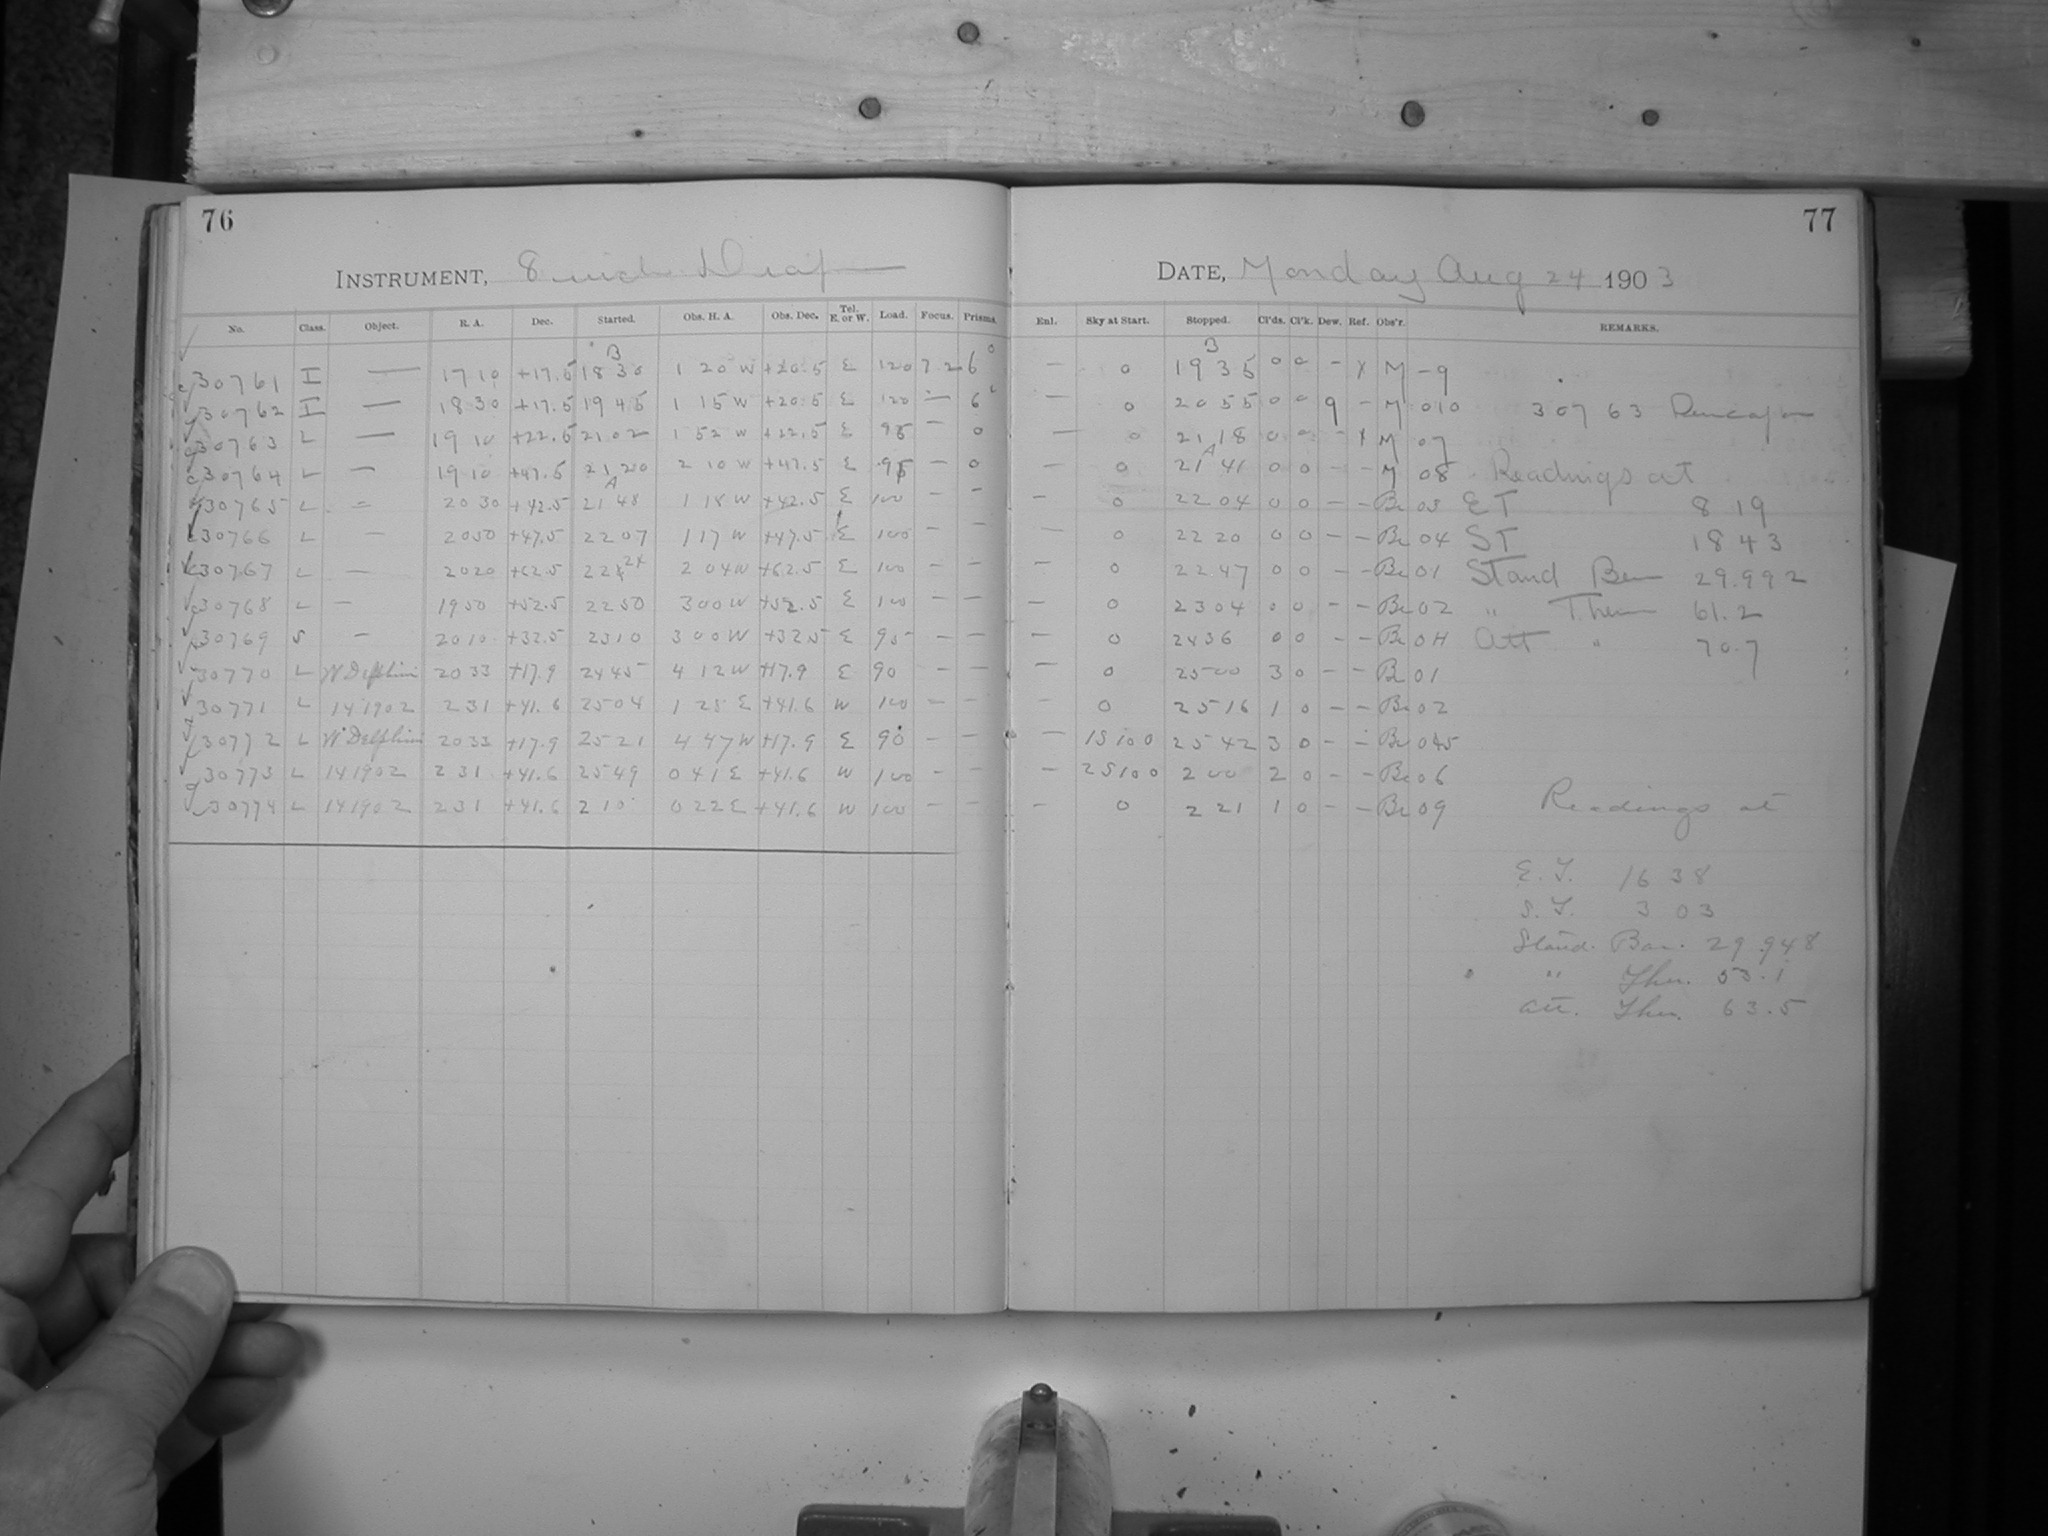 76
77
INSTRUMENT, 8 inch Draper
DATE, Monday Aug 24 1903
No. Class. Object. R. A. Dec. Started. Obs. H. A. Obs. Dec. Tel. E. or W. Load. Focus. Prisms. Enl. Sky at Start. Stopped. Cl'ds. Cl'k. Dew. Ref. Obs'r. REMARKS.
30761 I — 17 10 +17.5 B 18 30 1 20 W +20.5 E 120 7.2 6 — 0 B 19 35 0 0 – X M – 9
30762 I — 18 30 +17.5 19 45 1 15 W +20.5 E 120 — 6 — 0 20 55 0 0 9 – M 010 30763
30763 L — 19 10 +22.5 21 02 1 52 W +22.5 E 95 — 0 — 0 21 18 0 0 – X M 07
30764 L — 19 10 +47.5 21 20 2 10 W +47.5 E 95 — 0 — 0 A 21 41 0 0 – – M 08 Readings at
30765 L — 20 30 +42.5 A 21 48 1 18 W +42.5 E 100 – – – 0 22 04 0 0 – – Be 03 ET 8 19
30766 L — 20 50 +47.5 22 07 1 17 W +47.5 E 100 – – — 0 22 20 0 0 – – Be 04 ST 18 43
30767 L — 20 20 +62.5 22 24 2 04 W +62.5 E 100 – – — 0 22.47 0 0 – – Be 01 Stand Bar 29.992
30768 L — 19 50 +52.5 22 50 3 00 W +52.5 E 100 – – — 0 23 04 0 0 – – Be 02 " Them 61.2
30769 S — 20 10 +32.5 23 10 3 00 W +32.5 E 95 – – — 0 24 36 0 0 – – Be 0H Att " 70.7
30770 L W Delphini 20 33 +17.9 24 45 4 12 W +17.9 E 90 – – — 0 25 00 3 0 – – Be 01
30771 L 141902 2 31 +41.6 25 04 1 25 E +41.6 W 100 – – — 0 25 16 1 0 – – Be 02
30772 L W Delphini 20 33 +17.9 25 21 4 47 W +17.9 E 90 – – — 1S100 25 42 3 0 – – Be 045
30773 L 141902 2 31 +41.6 25 49 0 41 E +41.6 W 100 – – — 2S100 2 00 2 0 – – Be 06
30774 L 141902 2 31 +41.6 2 10 0 22 E +41.6 W 100 – – – 0 2 21 1 0 – – Be 09 Readings at
E. T. 16 38
S. T. 3 03
Stand. Bar. 29.948
" Ther. 53.1
Att. Ther. 63.5